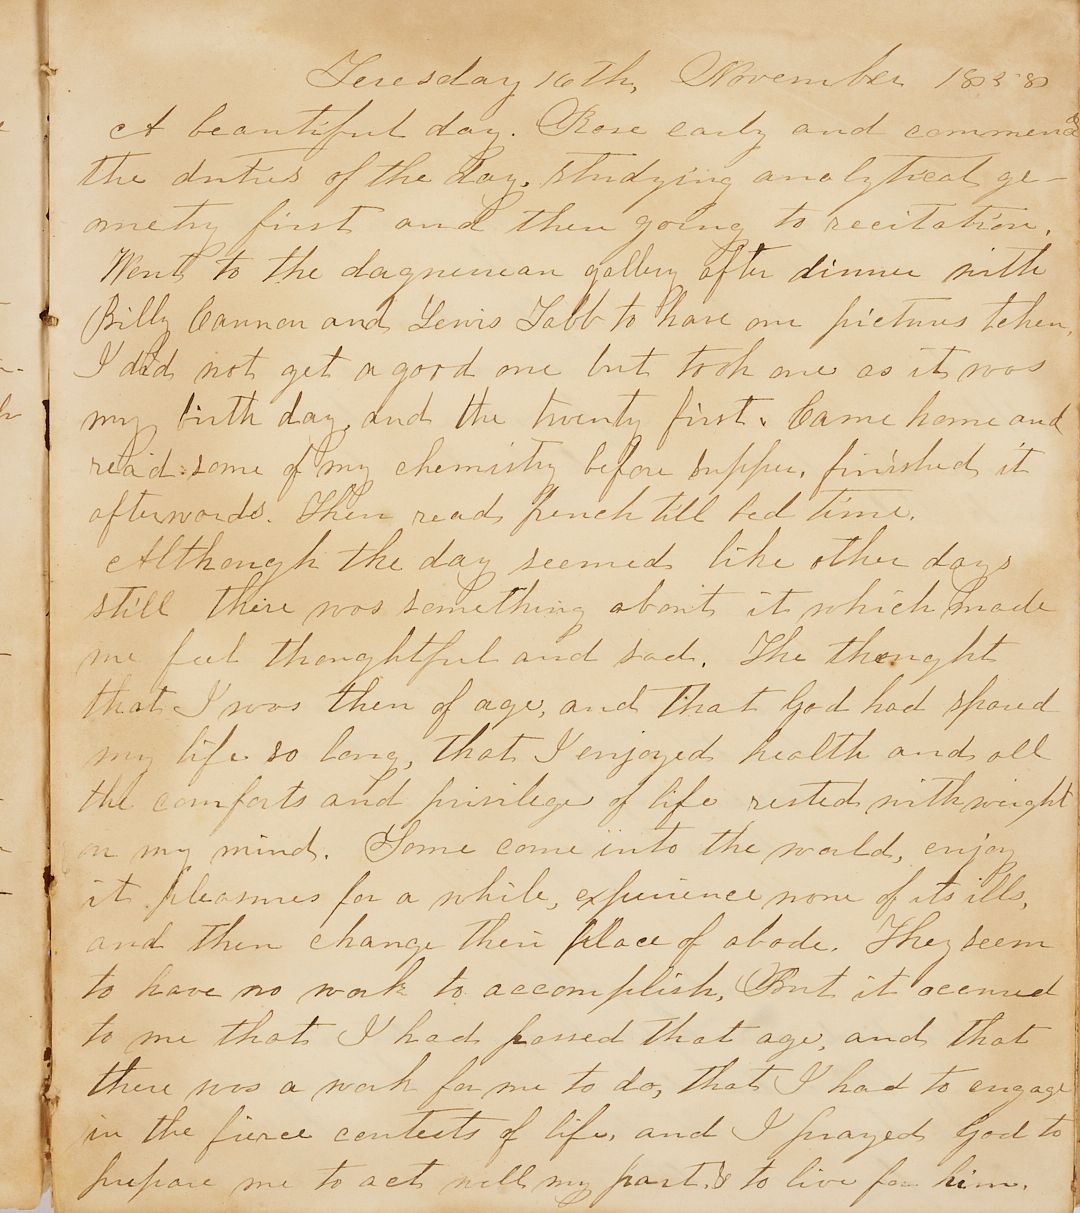 Tuesday 16th, November 1858
A beautiful day. Rose early and commenced
the duties of the day, studying analytical ge-
ometry first and then going to recitation.
Went to the daguerrean gallery after dinner with
Billy Cannon and Lewis Tabb to have our pictures taken,
I did not get a good one but took one as it was
my birth day, and the twenty first. Came home and
read some of my chemistry before supper, finished it
afterwards. Then read French till bed time.
Although the day seemed like other days
still there was something about it which made
me feel thoughtful and sad. The thought
that I was then of age, and that God had spared
my life so long, that I enjoyed health and all
the comforts and privileges of life rested with weight
on my mind. Some come into the world, enjoy
it pleasures for a while, experience none of its ills,
and then change their place of abode. They seem
to have no work to accomplish, But it occurred
to me that I had passed that age, and that
there was a work for me to do, that I had to engage
in the fierce contests of life, and I prayed God to
prepare me to act well my part & to live for him.